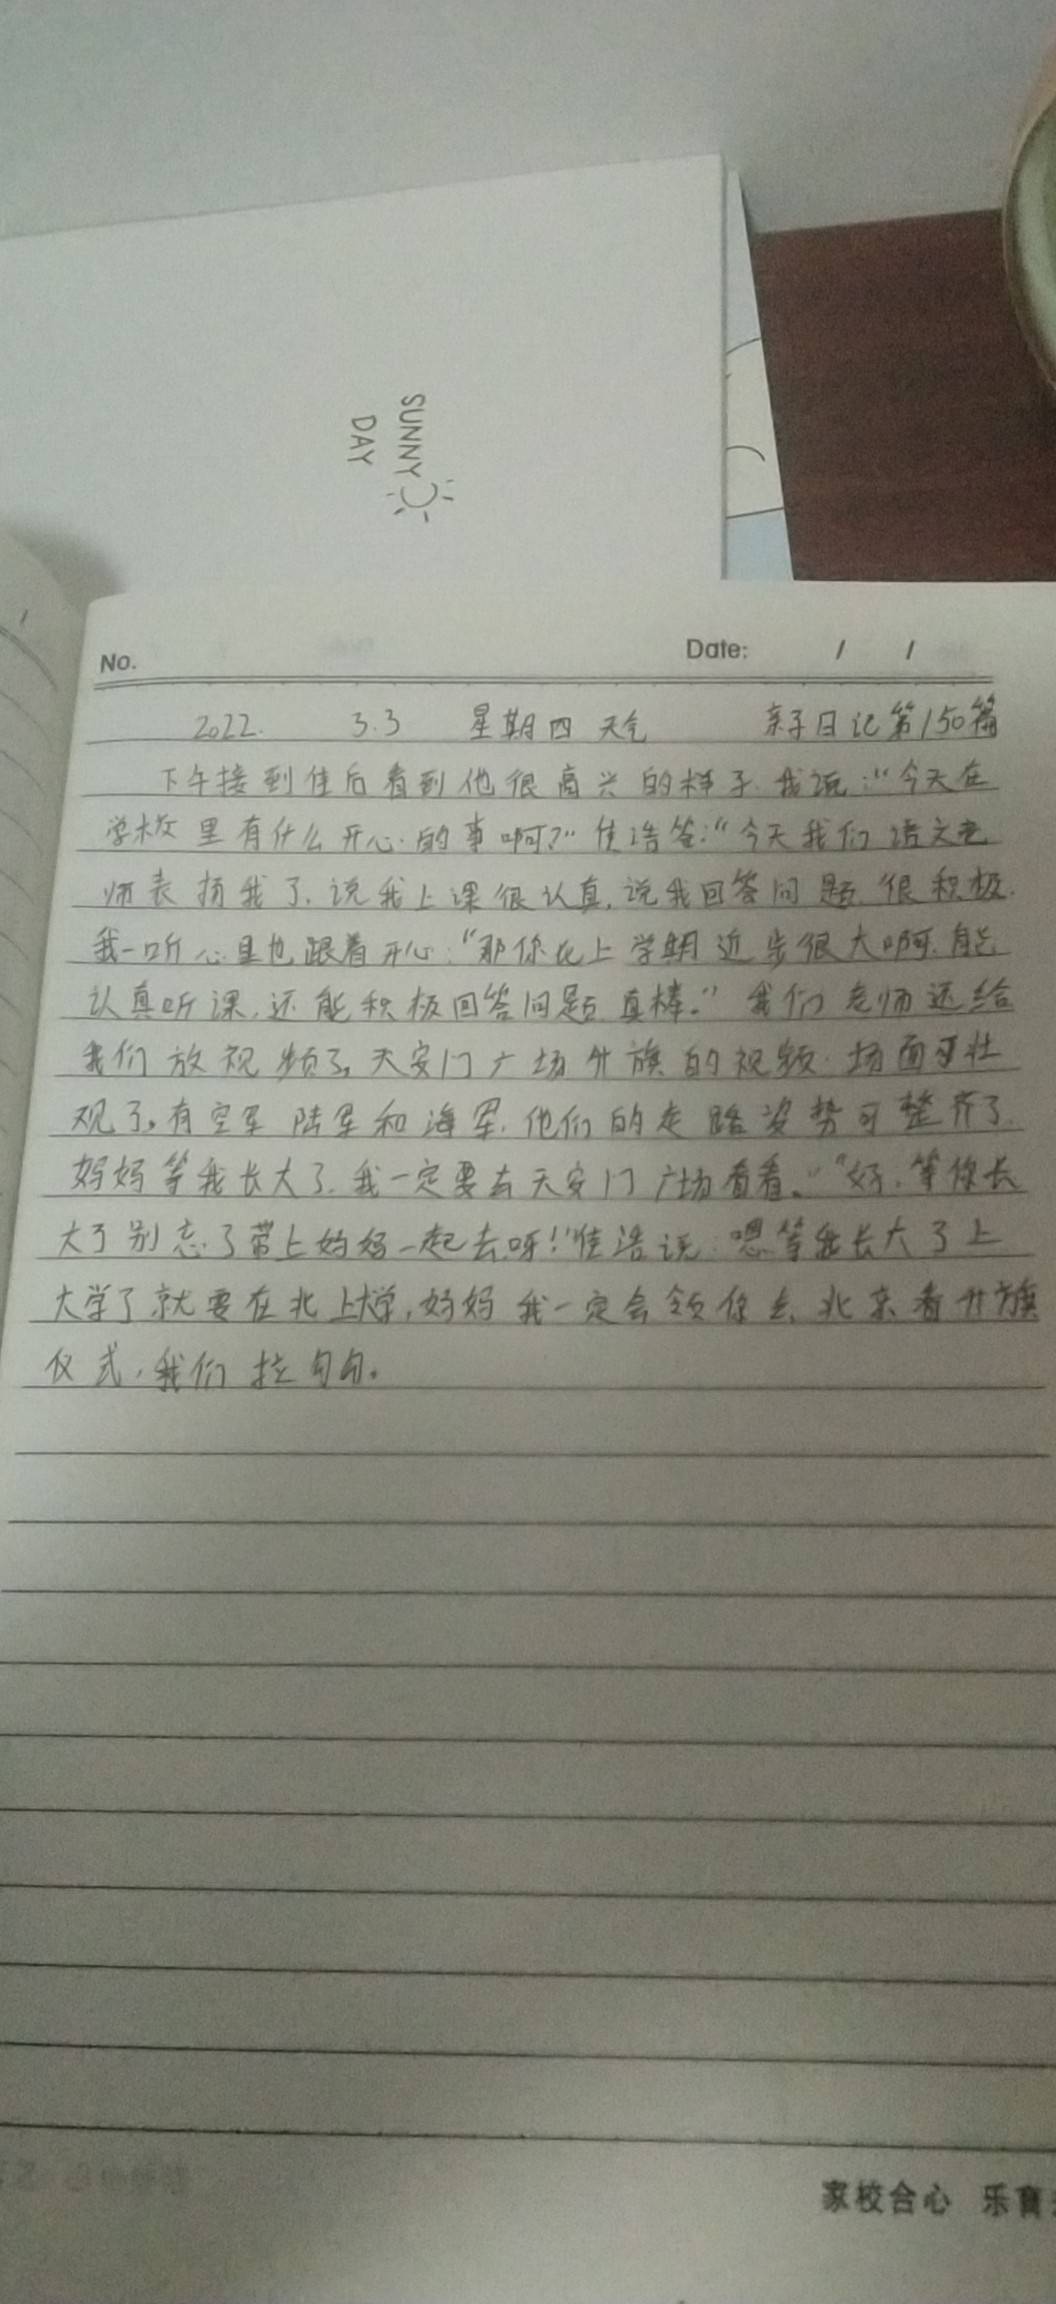 SUNNY
DAY
No.
Date: / /
2022. 3.3 星期四 天气 亲子日记第150篇
下午接到佳后看到他很高兴的样子.我说:“今天在
学校里有什么开心的事啊?”佳浩答:“今天我们语文老
师表扬我了.说我上课很认真,说我回答问题很积极.
我一听心里也跟着开心:“那你比上学期近步很大啊.能
认真听课,还能积极回答问题真棒。”我们老师还给
我们放视频了。天安门广场升旗的视频.场面可壮
观了。有空军陆军和海军.他们的走路姿势可整齐了.
妈妈等我长大了.我一定要去天安门广场看看。”“好,等你长
大了别忘了带上妈妈一起去呀!”佳浩说:嗯等我长大了上
大学了就要在北上大学,妈妈我一定会领你去北京看升旗
仪式,我们拉勾勾。
家校合心 乐育